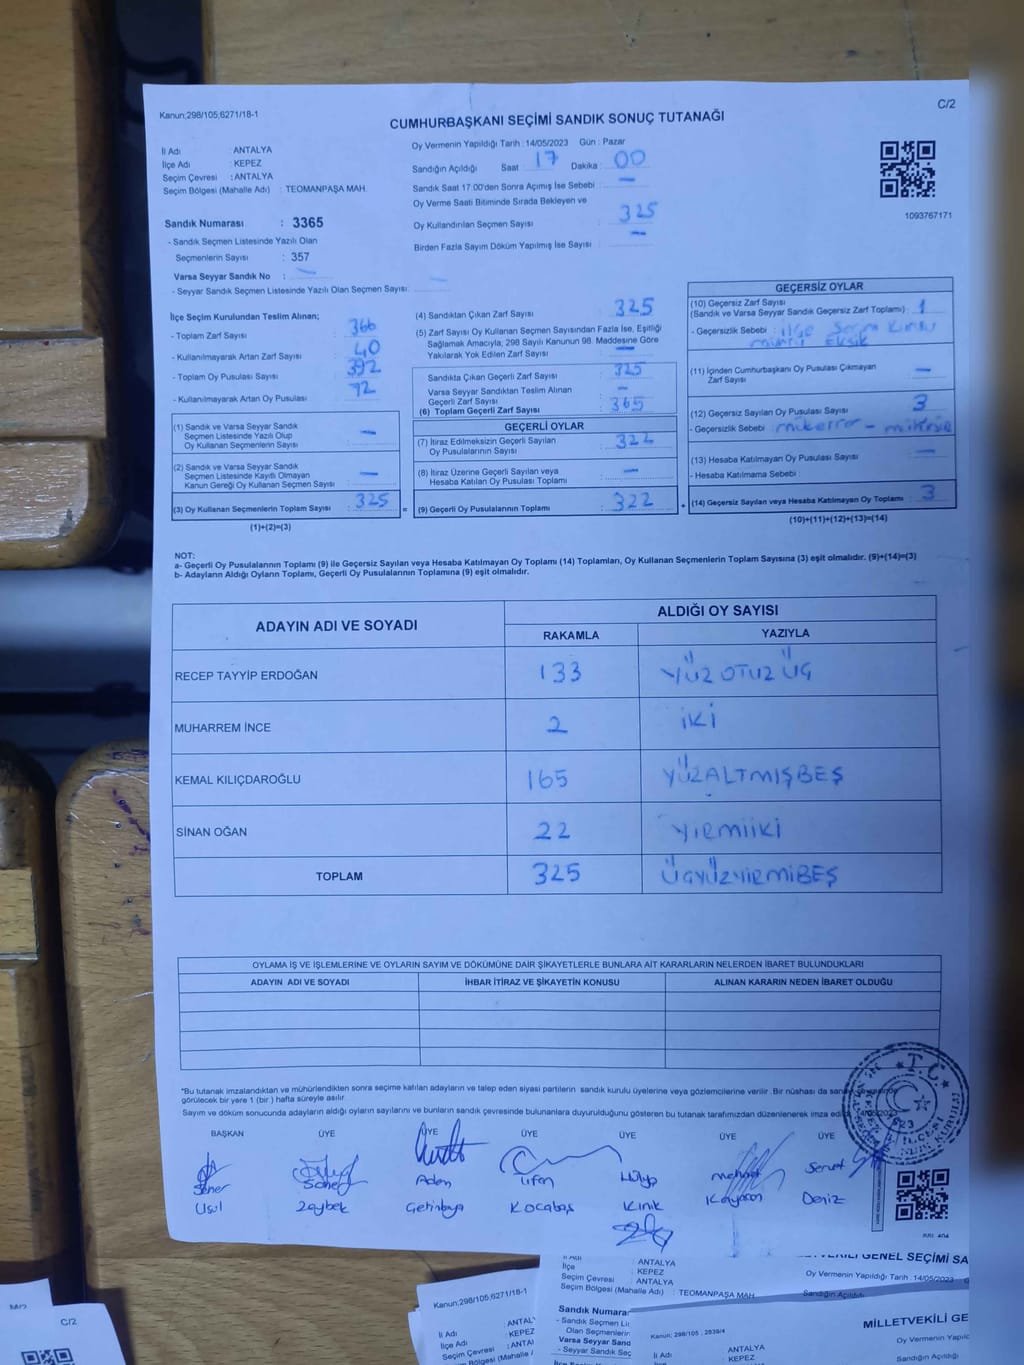 Kanun;298/105,6271/18-1
C/2
CUMHURBAŞKANI SEÇİMİ SANDIK SONUÇ TUTANAĞI
İl Adı : ANTALYA
İlçe Adı : KEPEZ
Seçim Çevresi : ANTALYA
Seçim Bölgesi (Mahalle Adı) : TEOMANPAŞA MAH.
Oy Vermenin Yapıldığı Tarih : 14/05/2023 Gün : Pazar
Sandığın Açıldığı Saat : 17 Dakika : 00
Sandık Saat 17.00'den Sonra Açımış İse Sebebi : —
Oy Verme Saati Bitiminde Sırada Bekleyen ve
Oy Kullandırılan Seçmen Sayısı : 325
Birden Fazla Sayım Döküm Yapılmış İse Sayısı : —
1093767171
Sandık Numarası : 3365
- Sandık Seçmen Listesinde Yazılı Olan
Seçmenlerin Sayısı : 357
Varsa Seyyar Sandık No : —
- Seyyar Sandık Seçmen Listesinde Yazılı Olan Seçmen Sayısı: —
İlçe Seçim Kurulundan Teslim Alınan;
- Toplam Zarf Sayısı : 366
- Kullanılmayarak Artan Zarf Sayısı : 40
- Toplam Oy Pusulası Sayısı : 392
- Kullanılmayarak Artan Oy Pusulası : 72
(1) Sandık ve Varsa Seyyar Sandık
Seçmen Listesinde Yazılı Olup
Oy Kullanan Seçmenlerin Sayısı : —
(2) Sandık ve Varsa Seyyar Sandık
Seçmen Listesinde Kayıtlı Olmayan
Kanun Gereği Oy Kullanan Seçmen Sayısı : —
(3) Oy Kullanan Seçmenlerin Toplam Sayısı : 325
(1)+(2)=(3)
(4) Sandıktan Çıkan Zarf Sayısı : 325
(5) Zarf Sayısı Oy Kullanan Seçmen Sayısından Fazla İse, Eşitliği
Sağlamak Amacıyla, 298 Sayılı Kanunun 98. Maddesine Göre
Yakılarak Yok Edilen Zarf Sayısı : —
Sandıkta Çıkan Geçerli Zarf Sayısı : 325
Varsa Seyyar Sandıktan Teslim Alınan
Geçerli Zarf Sayısı : —
(6) Toplam Geçerli Zarf Sayısı : 365
GEÇERLİ OYLAR
(7) İtiraz Edilmeksizin Geçerli Sayılan
Oy Pusulalarının Sayısı : 322
(8) İtiraz Üzerine Geçerli Sayılan veya
Hesaba Katılan Oy Pusulası Toplamı : —
= (9) Geçerli Oy Pusulalarının Toplamı : 322
GEÇERSİZ OYLAR
(10) Geçersiz Zarf Sayısı
(Sandık ve Varsa Seyyar Sandık Geçersiz Zarf Toplamı) : 1
- Geçersizlik Sebebi : ilçe Seçim Kurulu
mührü Eksik
(11) İçinden Cumhurbaşkanı Oy Pusulası Çıkmayan
Zarf Sayısı : —
(12) Geçersiz Sayılan Oy Pusulası Sayısı : 3
- Geçersizlik Sebebi :
(13) Hesaba Katılmayan Oy Pusulası Sayısı : —
- Hesaba Katılmama Sebebi :
+ (14) Geçersiz Sayılan veya Hesaba Katılmayan Oy Toplamı : 3
(10)+(11)+(12)+(13)=(14)
NOT:
a- Geçerli Oy Pusulalarının Toplamı (9) ile Geçersiz Sayılan veya Hesaba Katılmayan Oy Toplamı (14) Toplamları, Oy Kullanan Seçmenlerin Toplam Sayısına (3) eşit olmalıdır. (9)+(14)=(3)
b- Adayların Aldığı Oyların Toplamı, Geçerli Oy Pusulalarının Toplamına (9) eşit olmalıdır.
ADAYIN ADI VE SOYADI ALDIĞI OY SAYISI
RAKAMLA YAZIYLA
RECEP TAYYİP ERDOĞAN 133 YÜZ OTUZ ÜÇ
MUHARREM İNCE 2 İKİ
KEMAL KILIÇDAROĞLU 165 YÜZALTMIŞBEŞ
SİNAN OĞAN 22 YİRMİİKİ
TOPLAM 325 ÜÇYÜZYİRMİBEŞ
OYLAMA İŞ VE İŞLEMLERİNE VE OYLARIN SAYIM VE DÖKÜMÜNE DAİR ŞİKAYETLERLE BUNLARA AİT KARARLARIN NELERDEN İBARET BULUNDUKLARI
ADAYIN ADI VE SOYADI İHBAR İTİRAZ VE ŞİKAYETİN KONUSU ALINAN KARARIN NEDEN İBARET OLDUĞU
*Bu tutanak imzalandıktan ve mühürlendikten sonra seçime katılan adayların ve talep eden siyasi partilerin sandık kurulu üyelerine veya gözlemcilerine verilir. Bir nüshası da
görülecek bir yere 1 (bir.) hafta süreyle asılır.
Sayım ve döküm sonucunda adayların aldığı oyların sayılarını ve bunların sandık çevresinde bulunanlara duyurulduğunu gösteren bu tutanak tarafımızdan düzenlenerek imza
BAŞKAN ÜYE ÜYE ÜYE ÜYE ÜYE ÜYE
Şener Soner Aden İrfan Hülya Mehmet Servet
Usul Zaybek Çetinkaya Kocabaş Kınık Kayaran Deniz
T.C.
Kanun;298/105,6271/18-1
İl Adı : ANTALYA
İlçe : KEPEZ
Seçim Çevresi : ANTALYA
Seçim Bölgesi (Mahalle Adı) : TEOMANPAŞA MAH.
GENEL SEÇİMİ SA
Oy Vermenin Yapıldığı Tarih : 14/05/2023
Sandığın Açıldığı
Sandık Numarası
Varsa Seyyar Sand
- Seyyar Sandık Seç
MİLLETVEKİLİ GE
Kanun; 298/105 , 2839/4
Oy Vermenin Yapılc
Sandığın Açıldığı
İl Adı : ANTALYA
: KEPEZ
İl Adı : ANTAL
İlçe Adı : KEPE
Seçim Çevresi : ANTA
C/2